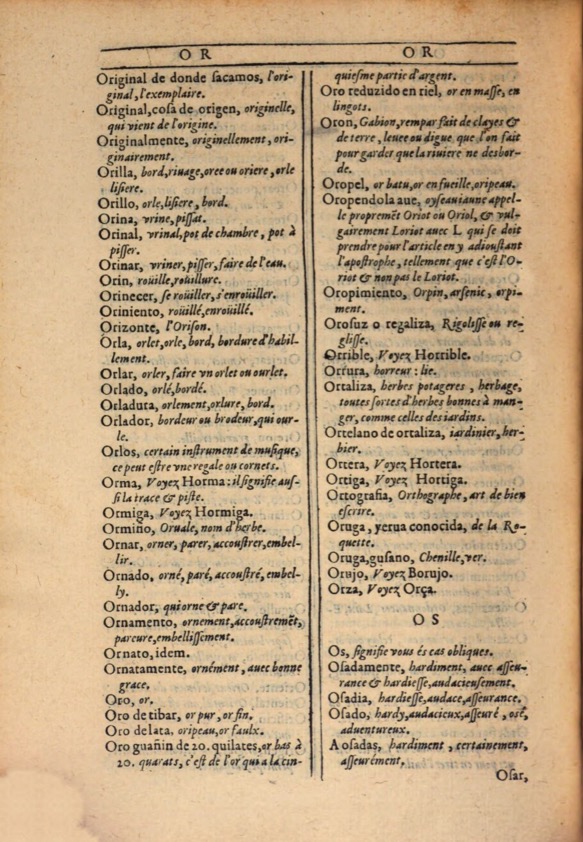 O R
Original de donde sacamos, l'ori-
ginal, l'exemplaire.
Original, cosa de origen, originelle,
qui vient de l'origine.
Originalmente, originellement, ori-
ginairement.
Orilla, bord, riuage, oree ou oriere, orle
lisiere.
Orillo, orle, lisiere, bord.
Orina, vrine, pissat.
Orinal, vrinal, pot de chambre, pot à
pisser.
Orinar, vriner, pisser, faire de l'eau.
Orin, roüille, roüillure.
Orinecer, se roüiller, s'enroüiller.
Oriniento, roüillé, enroüillé.
Orizonte, l'Orison.
Orla, orlet, orle, bord, bordure d'habil-
lement.
Orlar, orler, faire vn orlet ou ourlet.
Orlado, orlé, bordé.
Orladura, orlement, orlure, bord.
Orlador, bordeur ou brodeur, qui our-
le.
Orlos, certain instrument de musique,
ce peut estre vne regale ou cornets.
Orma, Voyez Horma: il signifie aus-
si la trace & piste.
Ormiga, Voyez Hormiga.
Ormiño, Oruale, nom d'herbe.
Ornar, orner, parer, accoustrer, embel-
lir.
Ornado, orné, paré, accoustré, embel-
ly.
Ornador, qui orne & pare.
Ornamento, ornement, accoustremẽt,
pareure, embellissement.
Ornato, idem.
Ornatamente, ornément, auec bonne
grace.
Oro, or.
Oro de tibar, or pur, or fin.
Oro de lata, oripeau, or faulx.
Oro guañin de 20. quilates, or bas à
20. quarats, c'est de l'or qui a la cin-
O R
quiesme partie d'argent.
Oro reduzido en riel, or en masse, en
lingots.
Oron, Gabion, rempar fait de clayes &
de terre, leuee ou digue que l'on fait
pour garder que la riuiere ne desbor-
de.
Oropel, or batu, or en fueille, oripeau.
Oropendola aue, oyseau iaune appel-
lé propremẽt Oriot ou Oriol, & vul-
gairement Loriot auec L qui se doit
prendre pour l'article en y adioustant
l'apostrophe, tellement que c'est l'O-
riot & non pas le Loriot.
Oropimiento, Orpin, arsenic, orpi-
ment.
Orosuz o regaliza, Rigolisse ou re-
glisse.
Orrible, Voyez Horrible.
Orrura, horreur: lie.
Ortaliza, herbes potageres, herbage,
toutes sortes d'herbes bonnes à man-
ger, comme celles des iardins.
Ortelano de ortaliza, iardinier, her-
bier.
Ortera, Voyez Hortera.
Ortiga, Voyez Hortiga.
Ortografia, Orthographe, art de bien
escrire.
Oruga, yerua conocida, de la Ro-
quette.
Oruga, gusano, Chenille, ver.
Orujo, Voyez Borujo.
Orza, Voyez Orça.
O S
Os, signifie vous és cas obliques.
Osadamente, hardiment, auec asseu-
rance & hardiesse, audacieusement.
Osadia, hardiesse, audace, asseurance.
Osado, hardy, audacieux, asseuré, osé,
aduentureux.
A osadas, hardiment, certainement,
asseurément.
Osar,